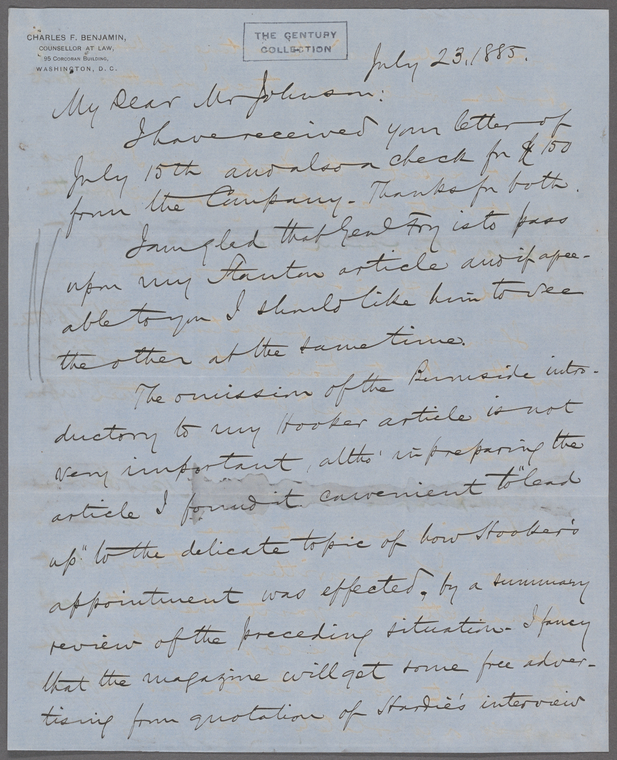 CHARLES F. BENJAMIN,
COUNSELLOR AT LAW,
95 CORCORAN BUILDING,
WASHINGTON, D. C.
THE CENTURY
COLLECTION
July 23, 1885.
My Dear Mr Johnson:
I have received your letter of
July 15th and also a check for $150
from the Company. Thanks for both.
I am glad that Genl Fry is to pass
upon my Stanton article and if agree-
able to you I should like him to see
the other at the same time.
The omission of the Burnside intro-
ductory to my Hooker article is not
very important, altho' in preparing the
article I found it convenient to "lead
up" to the delicate topic of how Hooker's
appointment was effected, by a summary
review of the preceding situation. I fancy
that the magazine will get some free adver-
tising from quotation of Hardie's interview